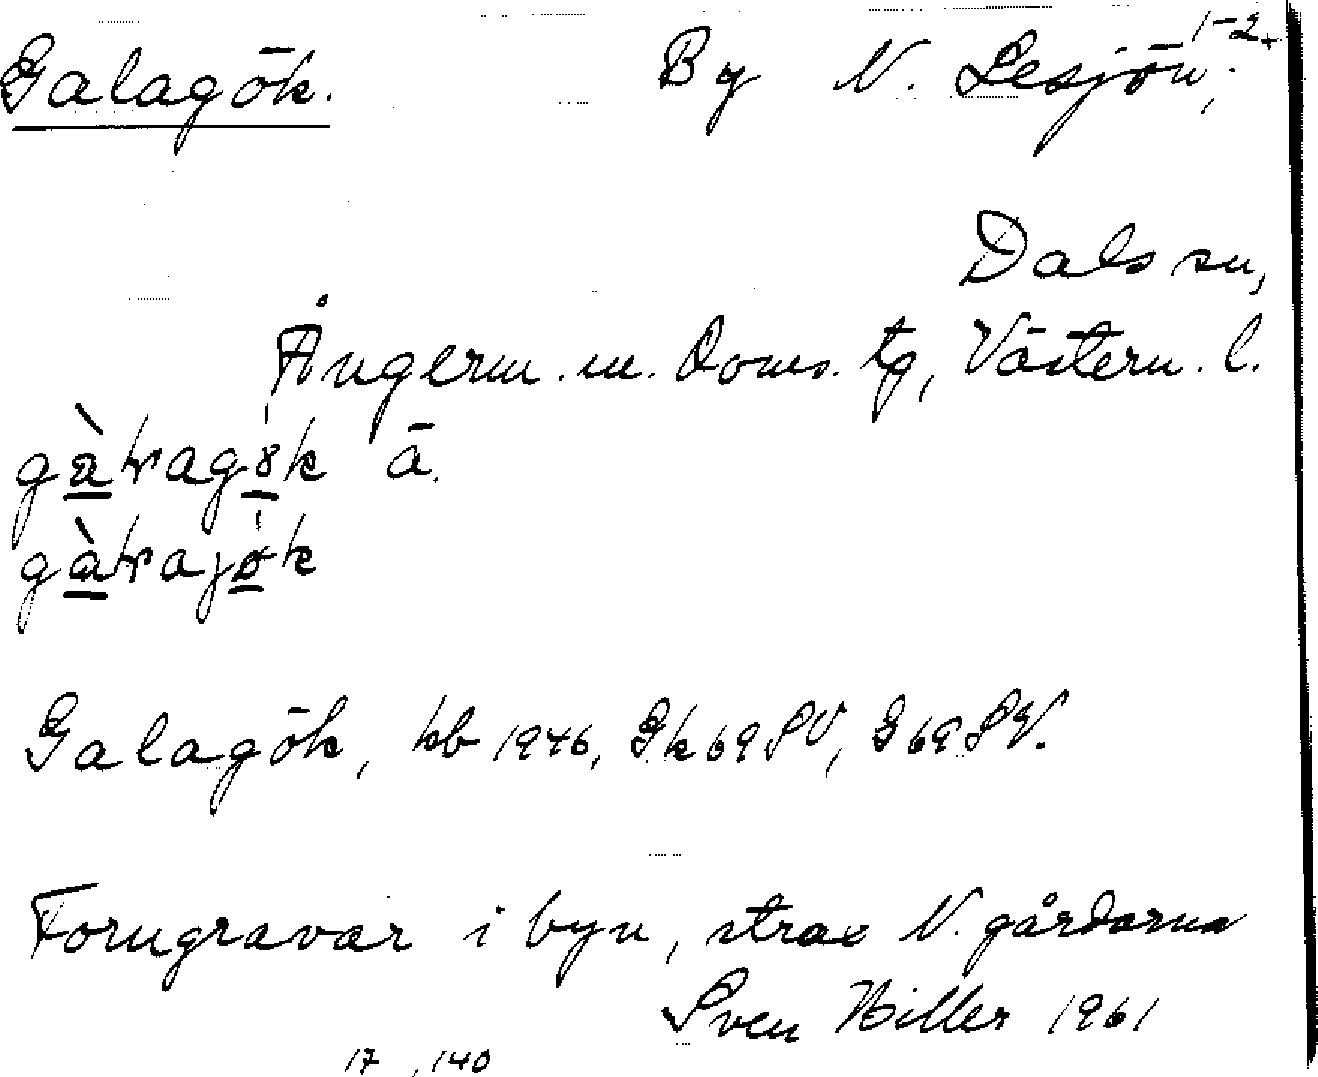 Galagök. By N. Lesjön, 1-2.
Dals sn,
Ångerm. m. Doms. tg, Västern. l.
ā.
Galagök, kb 1946, Gk 69 SV, G 69 SV.
Forngravar i byn, strax N. gårdarna
Sven Hiller 1961
17 , 140